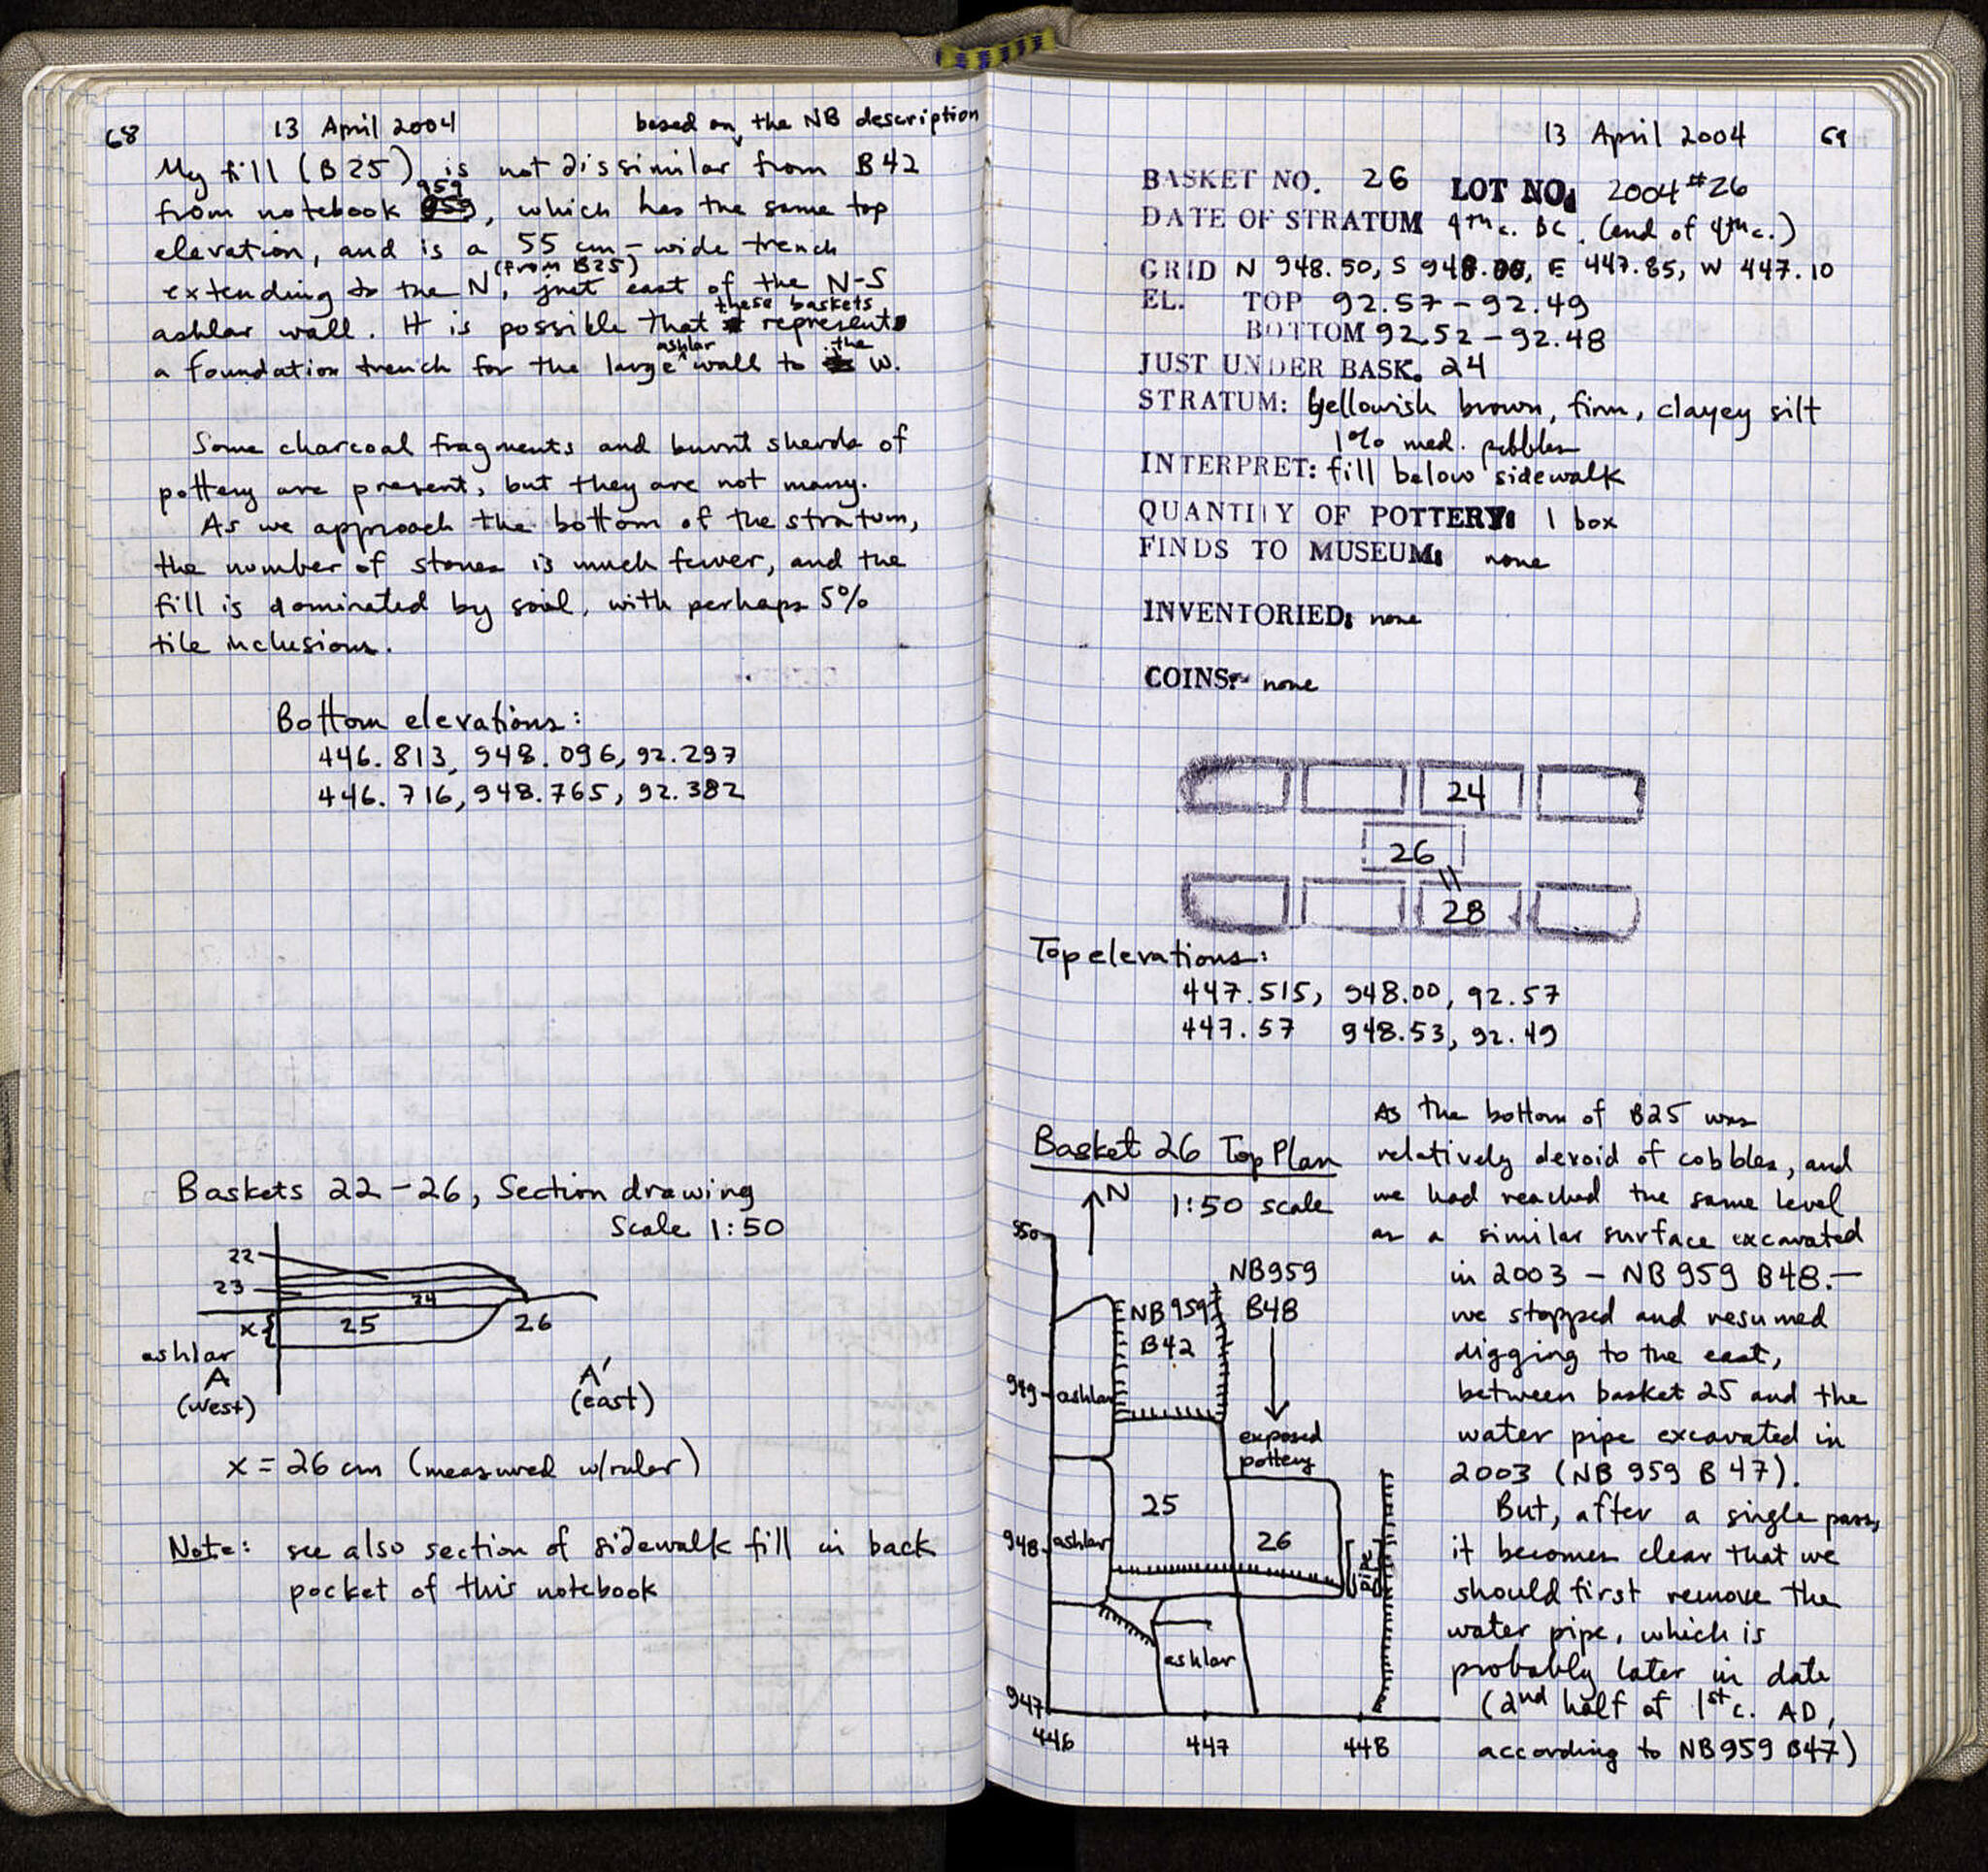 68 13 April 2004
My fill (B25) is not dissimilar based on the NB description from B42
from notebook 959, which has the same top
elevation, and is a 55 cm-wide trench
extending to the N (from B25), just east of the N-S
ashlar wall. It is possible that these baskets represent
a foundation trench for the large ashlar wall to the W.
Some charcoal fragments and burnt sherds of
pottery are present, but they are not many.
As we approach the bottom of the stratum,
the number of stones is much fewer, and the
fill is dominated by soil, with perhaps 5%
tile inclusions.
Bottom elevations:
446.813, 948.096, 92.297
446.716, 948.765, 92.382
Baskets 22-26, Section drawing
Scale 1:50
22
23
24
x
25
26
ashlar
A
(west)
A'
(east)
x = 26 cm (measured w/ruler)
Note: see also section of sidewalk fill in back
pocket of this notebook
13 April 2004 69
BASKET NO. 26 LOT NO. 2004 #26
DATE OF STRATUM 4th c. BC. (end of 4th c.)
GRID N 948.50, S 948.00, E 447.85, W 447.10
EL. TOP 92.57-92.49
BOTTOM 92.52-92.48
JUST UNDER BASK. 24
STRATUM: yellowish brown, firm, clayey silt
1% med. pebbles
INTERPRET: fill below sidewalk
QUANTITY OF POTTERY: 1 box
FINDS TO MUSEUM: none
INVENTORIED: none
COINS: none
24
26
28
Top elevations:
447.515, 948.00, 92.57
447.57 948.53, 92.49
Basket 26 Top Plan
N
1:50 scale
950
NB959
B48
NB959
B42
949
ashlar
exposed
pottery
25
948
ashlar
26
pipe
ashlar
947
446
447
448
As the bottom of B25 was
relatively devoid of cobbles, and
we had reached the same level
as a similar surface excavated
in 2003 - NB 959 B48. -
we stopped and resumed
digging to the east,
between basket 25 and the
water pipe excavated in
2003 (NB 959 B 47).
But, after a single pass,
it becomes clear that we
should first remove the
water pipe, which is
probably later in date
(2nd half of 1st c. AD,
according to NB959 B47)